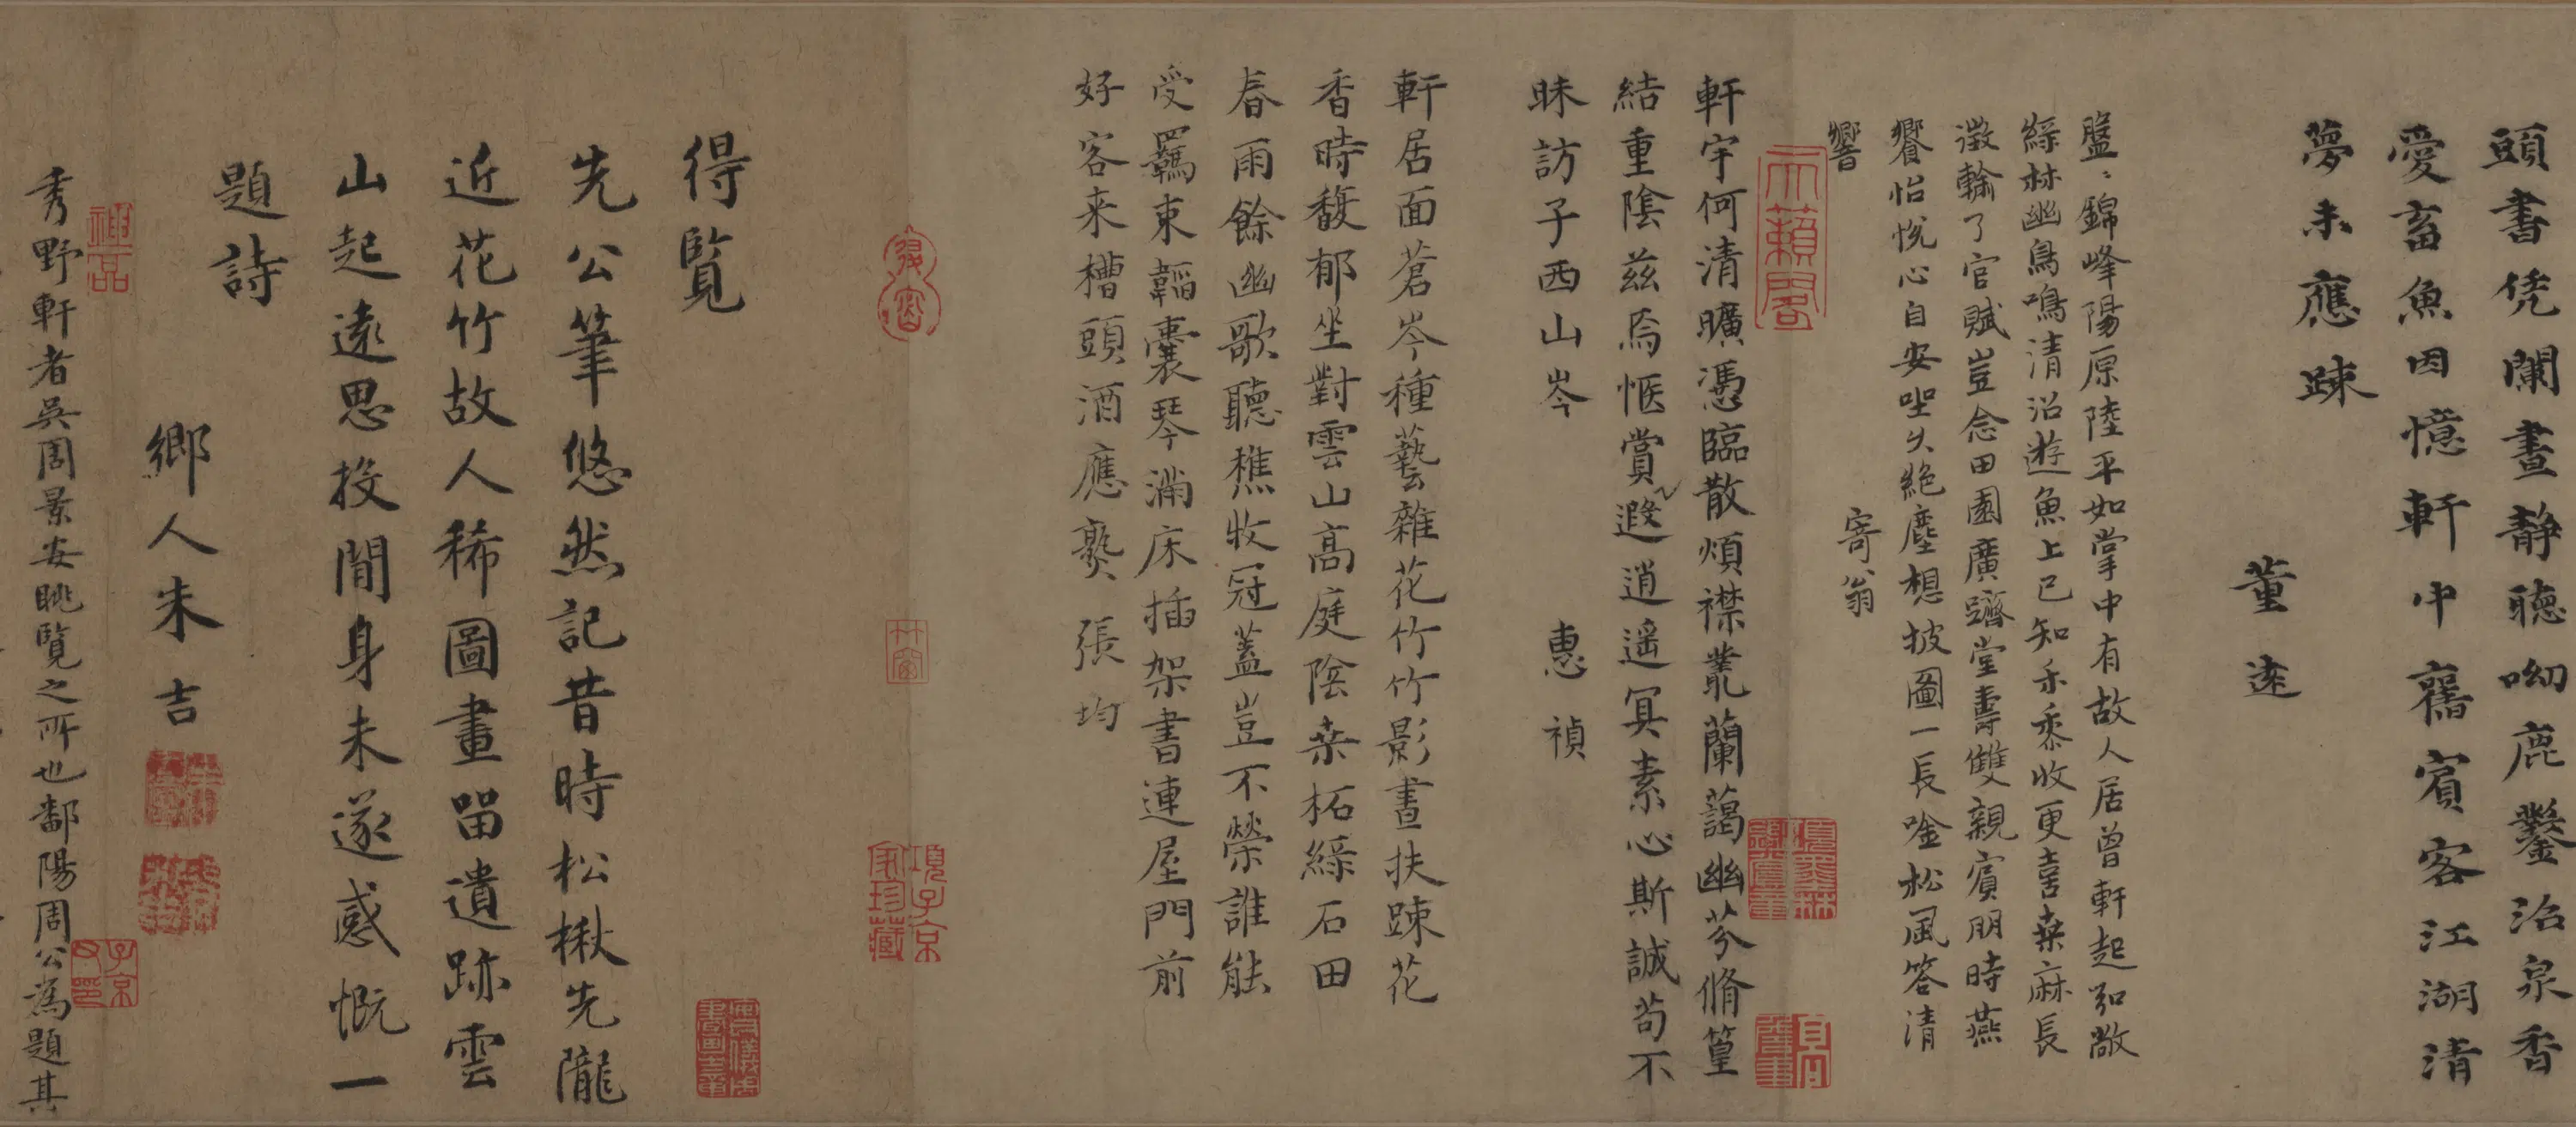 頭書凭闌晝静聴呦鹿鑿沼泉香
愛畜魚因憶軒中舊賓客江湖清
夢未應踈
董遠
盤〻錦峰陽原陸平如掌中有故人居曾軒起弘敞
緑林幽鳥鳴清沼遊魚上已知禾黍收更喜桒麻長
徵輸了官賦豈念田園廣躋堂壽雙親賓朋時燕
饗怡悦心自安坐久絶塵想披圖一長唫松風答清
響
寄翁
天籟閣
軒宇何清曠憑臨散煩襟叢蘭藹幽芬脩篁
結重陰茲焉愜賞遐逍遥冥素心斯誠苟不
昧訪子西山岑
惠禎
軒居面蒼岑種藝雜花竹竹影晝扶踈花
香時馥郁坐對雲山髙庭陰桒柘緑石田
春雨餘幽歌聽樵牧冠蓋豈不榮誰能
受羈束韜囊琴滿床插架書連屋門前
好客来槽頭酒應熟
張均
項子京家珍藏
得覧
先公筆悠然記昔時松楸先隴
近花竹故人稀圖畫留遺跡雲
山起遠思投閒身未遂感慨一
題詩
鄉人朱吉
神品
子京父印
秀野軒者吳周景安眺覧之所也鄱陽周公為題其